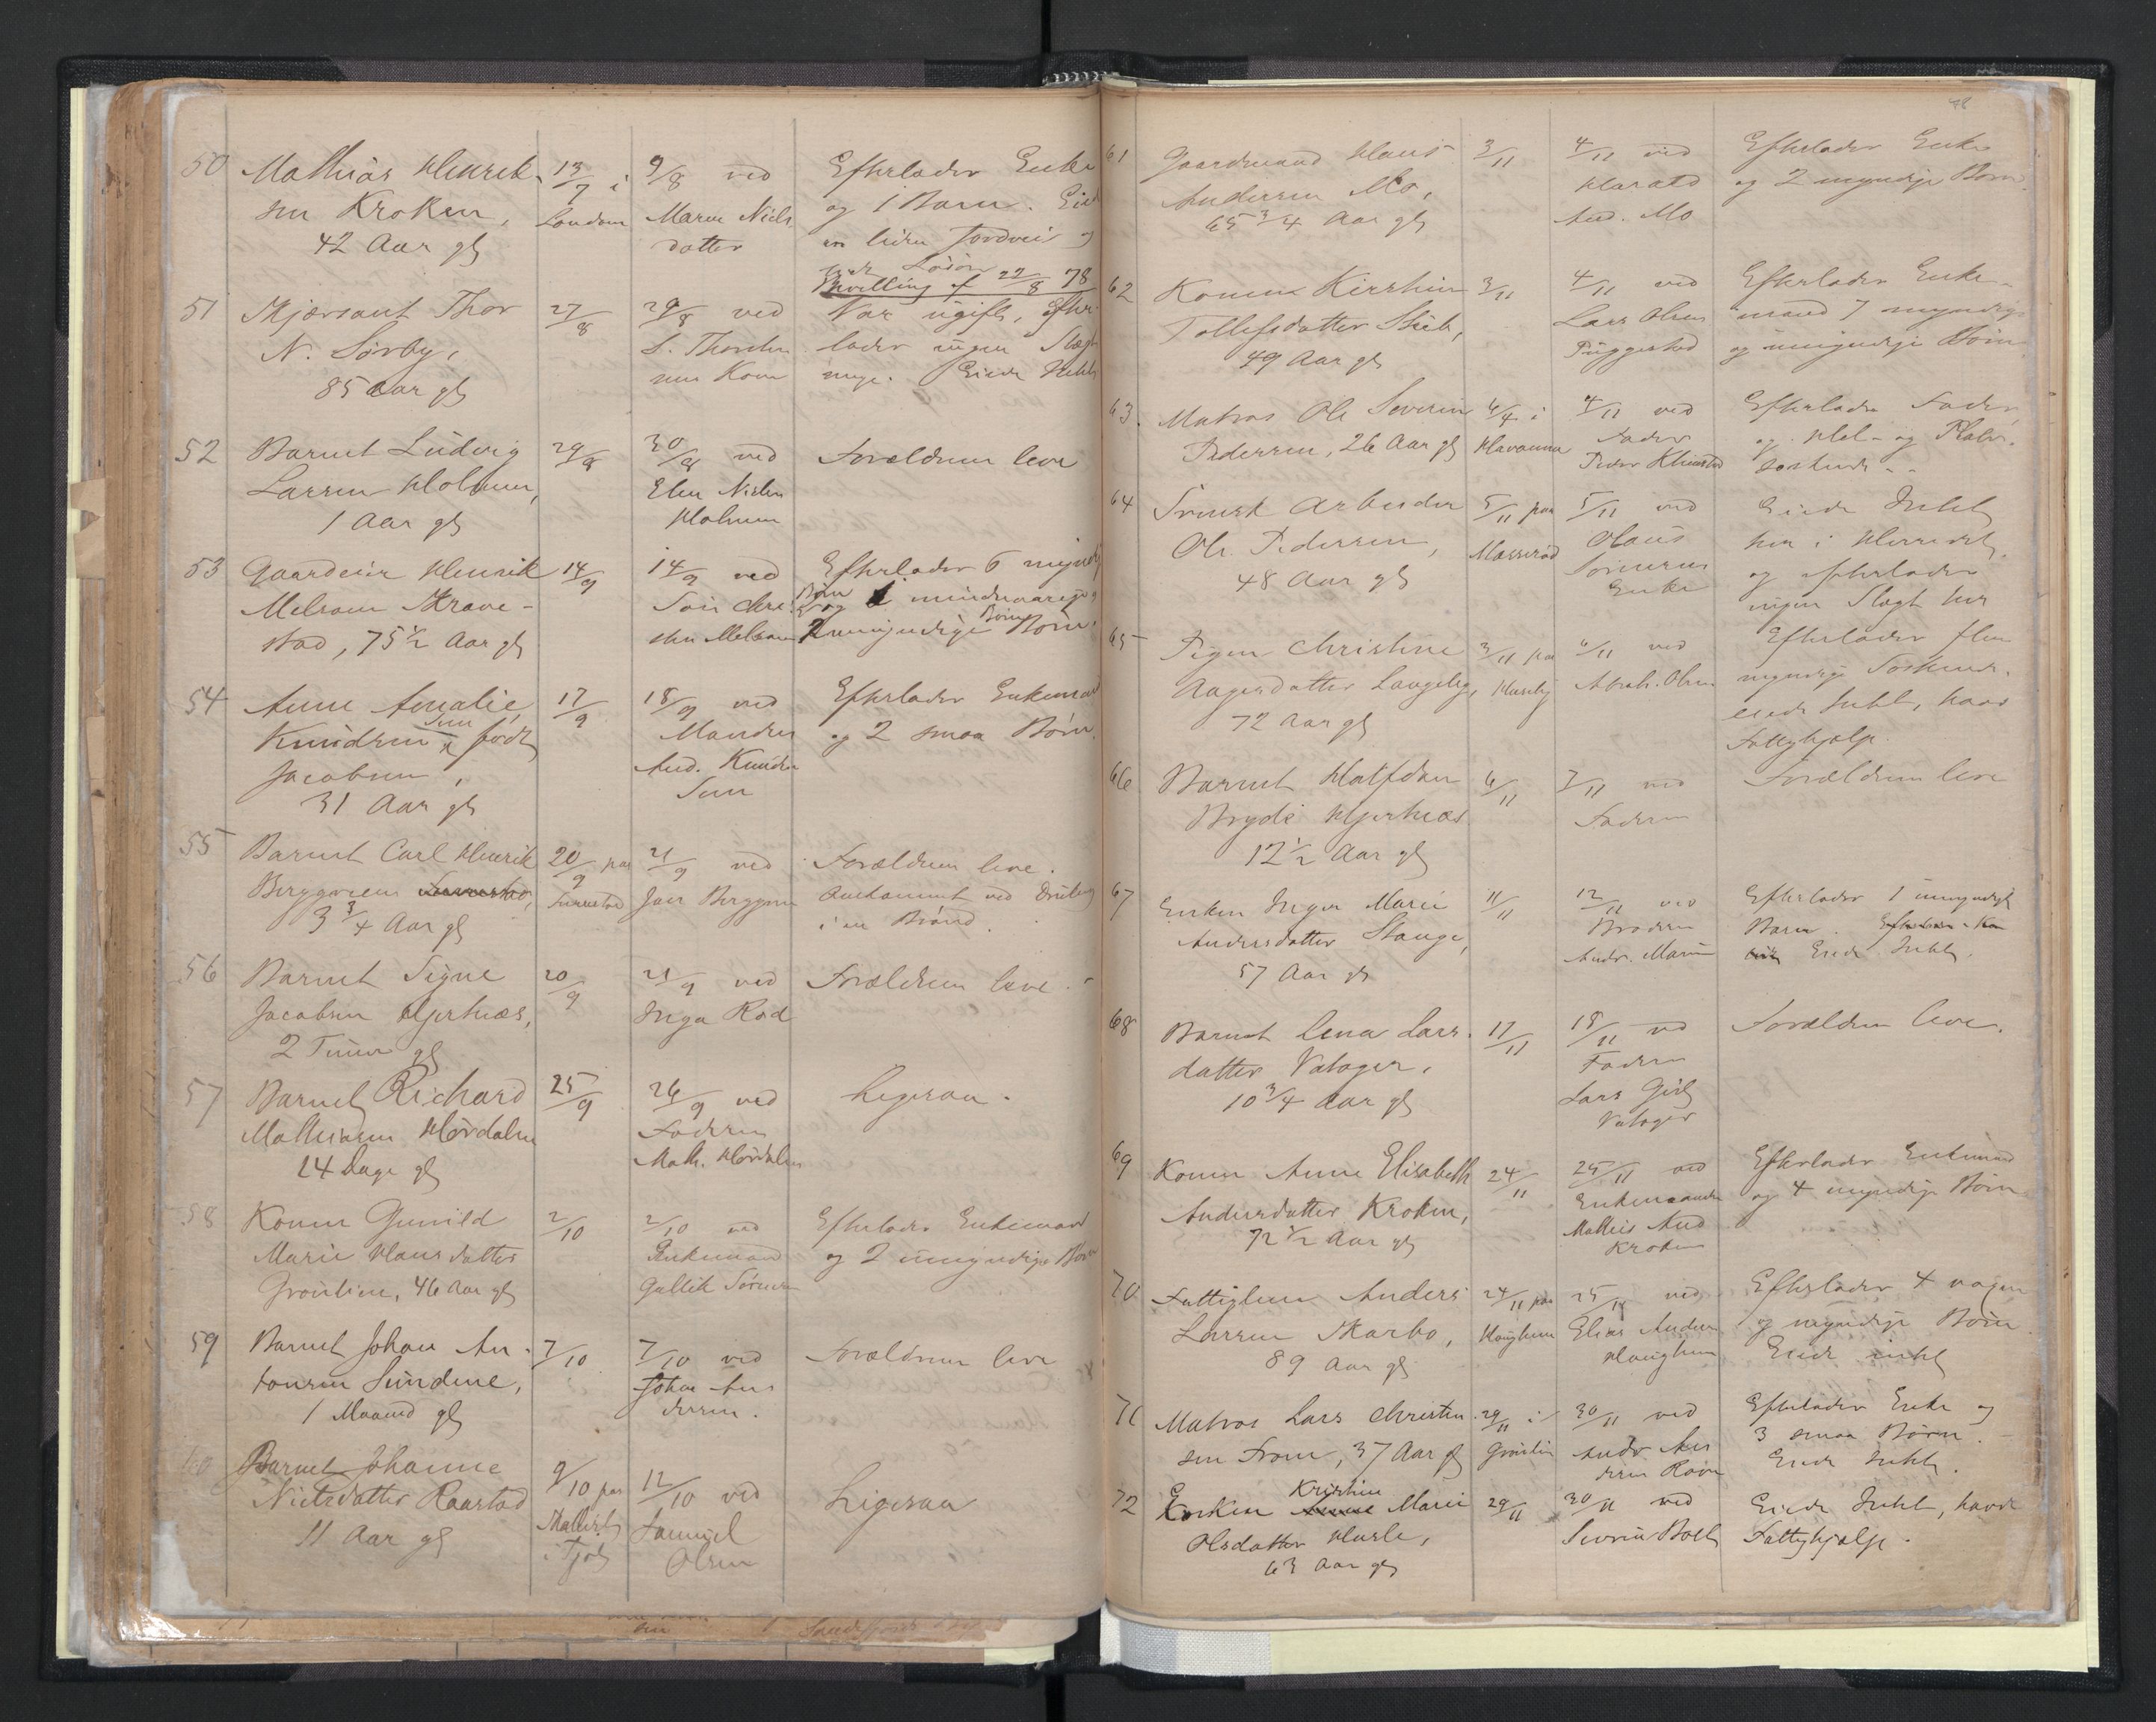 50 Mathias Henrik- 13/7 i 9/8 ved Efterlader Enke
sen Kroken, London Maren Niels og 1 Barn. Eied
42 Aar gl datter en liden Jordvei og
Bevilling af 22/8 78
51 Thor 27/8 29/8 ved Var ugift, efter-
N. Sørby, lader ingen Slægt
85 Aar gl Eiede Intet
52 Barnet Ludvig 29/8 30/8 ved Forældrene leve
Larsen Holmen, Elen Nielsen
1 Aar gl Holmen
53 Gaardeier Henrik 14/9 14/9 ved Efterlader 6 myndig
Melsom Skrave- Børn og mindreaarige
stad, 75 1/2 Aar gl Melsom umyndige Børn
54 Anne Amalie 17/9 18/9 ved Efterlader Enkemand
Knudsen Sem født Manden og 2 smaa Børn.
Jacobsen, And. Knudsen
31 Aar gl Sem
55 Barnet Carl Henrik 20/9 paa 21/9 ved Forældrene leve.
Berggreen Berggren Omkommet ved
3 3/4 Aar gl i en Brønd.
56 Barnet Signe 20/9 21/9 ved Forældrene leve.
Jacobsen Hjertnæs, Inga Rød
2 Timer gl
57 Barnet Richard 25/9 26/9 ved Ligesaa.
Mathiasen Hørdalen Faderen
14 Dage gl Math. Hørdalen
58 Konen Gunild 2/10 2/10 ved Efterlader Enkemand
Marie Hansdatter Enkemand og 2 umyndige Børn
Grønlien, 46 Aar gl Gullik Sørensen
59 Barnet Johan An- 7/10 7/10 ved Forældrene leve
tonsen Sundene, Johan An
1 Maaned gl dersen.
60 Barnet Johanne 9/10 paa 12/10 ved Ligesaa
Nielsdatter Raastad Samuel
11 Aar gl i Tjøl Olsen
48
61 Gaardmand Hans 3/11 4/11 ved Efterlader Enke
Andersen Mo, Harald og 2 myndige Børn
65 3/4 Aar gl And. Mo
62 Konen Kirstine 3/11 4/11 ved Efterlader Enke-
Tollefsdatter Lars Olsen mand 7 myndige
49 Aar gl og umyndige Børn
63. Matros Ole Severin 4/4 i 4/11 ved Efterlader Fader
Pedersen, 26 Aar gl Havanna Fader og Hel- og Halv-
Peder søskende -
64 Svensk Arbeider 5/11 paa 5/11 ved Eiede Intet
Ole Pedersen, Mosserød Olaus her i Herredet,
48 Aar gl Sørensens og efterlader
Enke ingen Slægt her
65 Pigen Christine 3/11 paa 6/11 ved Efterlader flere
Aagesdatter Langeby, Huseby Abrah. Olsen myndige Søskende.
72 Aar gl Eiede Intet, havde
Fattighjælp.
66 Barnet Halfdan 6/11 7/11 ved Forældrene leve
Bryde Hjertnæs Faderen
12 1/2 Aar gl
67 Enken Inger Marie 11/11 12/11 ved Efterlader 1 umyndigt
Andersdatter Stange, Broderen Barn.
57 Aar gl Eiede Intet.
68 Barnet Lena Lars- 17/11 18/11 ved Forældrene leve.
datter Vatager, Faderen
10 3/4 Aar gl Lars
Vatager
69 Konen Anne Elisabeth 24/11 25/11 ved Efterlader Enkemand
Andersdatter Kroken, Enkemanden og 4 myndige Børn
72 1/2 Aar gl Mathis And
Kroken
70 Fattiglem Anders 24/11 paa 25/11 ved Efterlader 4 voxne
Larsen Skarbo, Haughem Elias Andersen og myndige Børn
89 Aar gl Haughem Eiede intet
71 Matros Lars Christen- 29/11 i 30/11 ved Efterlader Enke og
sen From, 37 Aar gl Grønlien Andr. An 3 smaa Børn.
dersen Eiede Intet.
72 Enken Kristine Marie 29/11 30/11 ved Eiede Intet, havde
Olsdatter Hasle, Severin Fattighjælp.
63 Aar gl